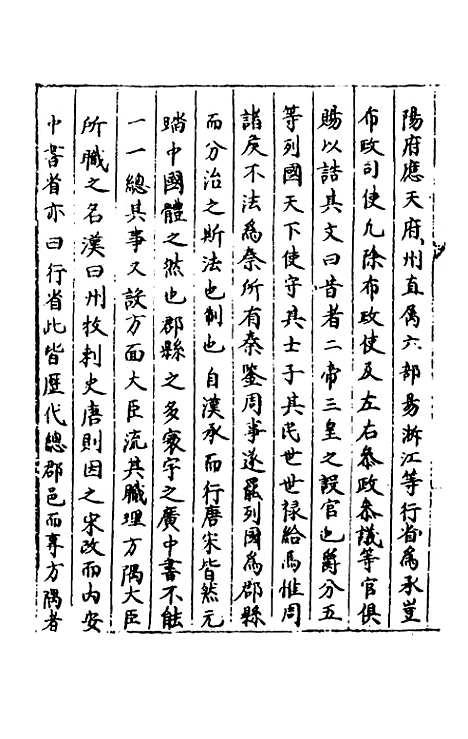 陽府應天府州直屬六部易浙江等行省為承宣
布政司使凡除布政使及左右叅政叅議等官俱
賜以誥其文曰昔者二帝三皇之設官也爵分五
等列國天下使守其土子其民世世祿給焉惟周
諸侯不法為秦所有秦鑒周事遂罷列國為郡縣
而分治之斯法也制也自漢承而行唐宋皆然元
踏中國體之然也郡縣之多寰宇之廣中書不能
一一總其事又設方面大臣流其職理方隅大臣
所職之名漢曰州牧刺史唐則因之宋改而內安
中書省亦曰行省此皆歷代總郡邑而專方隅者